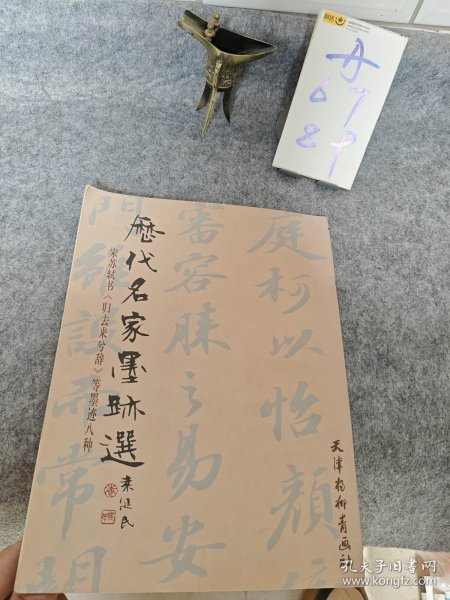 A
6 7
8 9
庭柯以怡颜
審容膝之易安
門雖設而常關
歷代名家墨跡選
宋苏轼书《归去来兮辞》等墨迹八种
天津杨柳青画社
孔夫子旧书网
www.kongfz.com